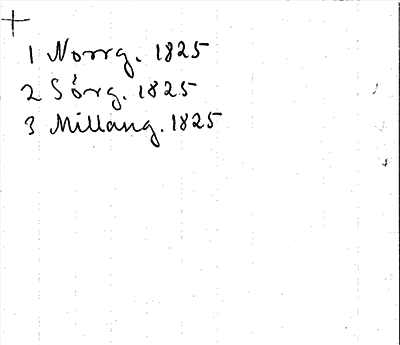 1 Norrg. 1825
2 Sörg. 1825
3 Millang. 1825